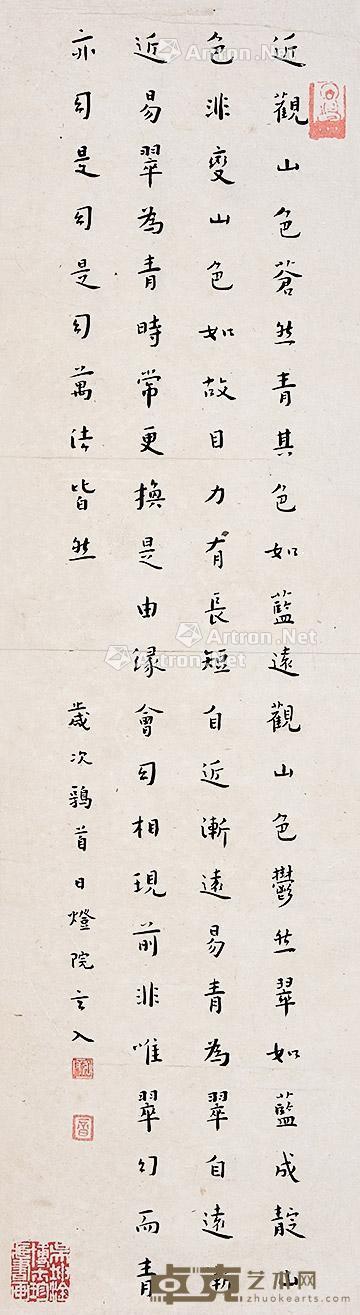 近觀山色蒼然青其色如藍遠觀山色鬱然翠如藍成靛山
色非變山色如故目力有長短自近漸遠易青為翠自遠漸
近易翠為青時常更換是由緣會幻相現前非唯翠幻而青
亦幻是幻是幻萬法皆然
歲次鶉首日燈院玄入
音
Artron.Net
Artron.Net
Artron.Net
Artron.Net
卓克艺术网
zhuokearts.com